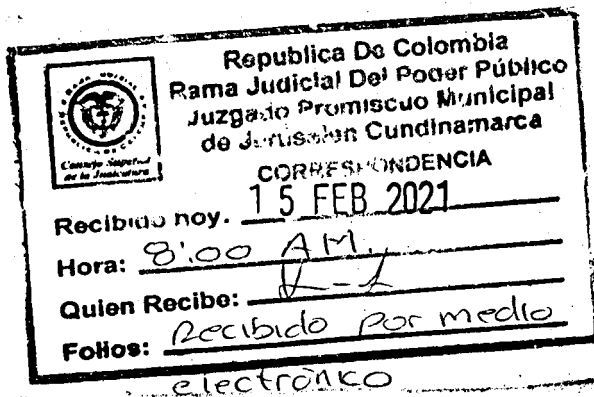 Republica De Colombia
Rama Judicial Del Poder Público
Juzgado Promiscuo Municipal
de Jerusalen Cundinamarca
Consejo Superior
de la Judicatura
CORRESPONDENCIA
Recibido hoy. 15 FEB 2021
Hora: 8:00 AM.
Quien Recibe:
Folios: Recibido por medio
electrónico